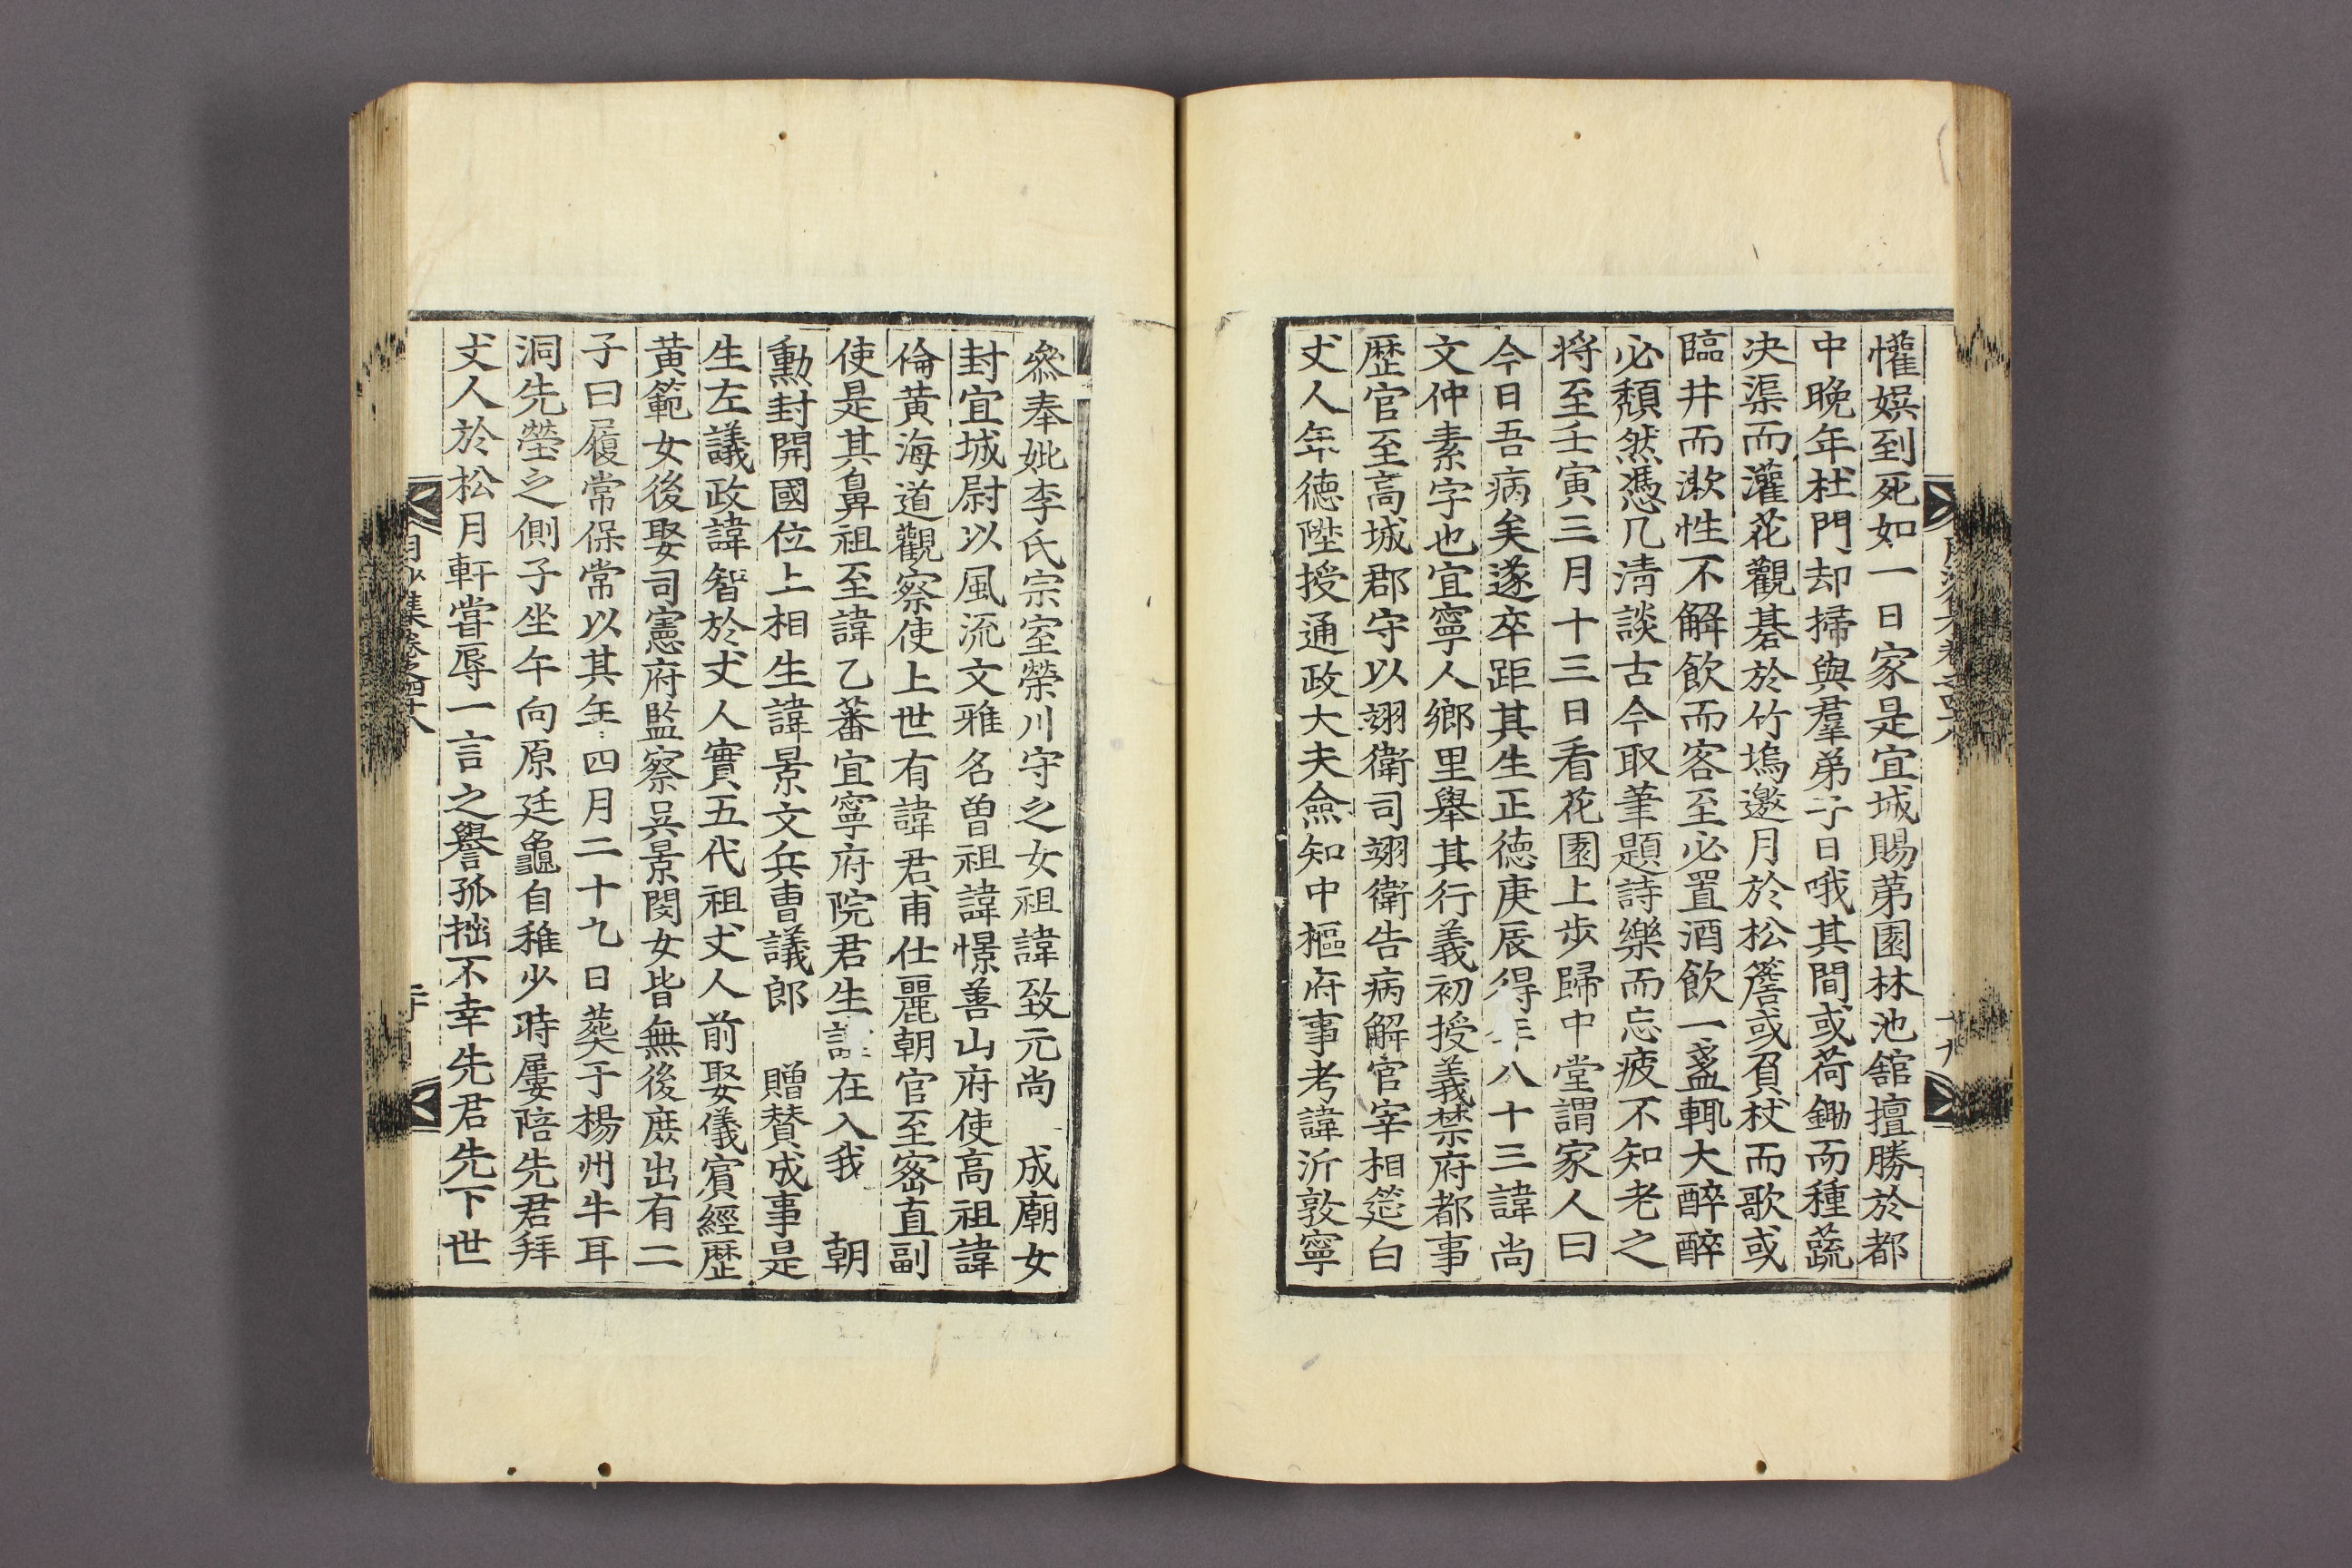 懽娛到死如一日家是宜城賜苐園林池舘擅勝於都
中晩年杜門却掃與羣弟子日哦其間或荷鋤而種蔬
决渠而灌花觀碁於竹塢邀月於松簷或負杖而歌或
臨井而漱性不解飲而客至必置酒飲一盞輒大醉醉
必頽然憑几淸談古今取筆題詩樂而忘疲不知老之
将至壬寅三月十三日看花園上步歸中堂謂家人曰
今日吾病矣遂卒距其生正德庚辰得年八十三諱尚
文仲素字也宜寧人鄉里舉其行義初授義禁府都事
歷官至高城郡守以翊衛司翊衛告病解官宰相筵白
丈人年德陞授通政大夫僉知中樞府事考諱沂敦寧
叅奉妣李氏宗室榮川守之女祖諱致元尚　成廟女
封宜城尉以風流文雅名曽祖諱憬善山府使高祖諱
倫黃海道觀察使上世有諱君甫仕麗朝官至密直副
使是其鼻祖至諱乙蕃宜寧府院君生諱在入我　朝
勳封開國位上相生諱景文兵曹議郎　贈賛成事是
生左議政諱智於丈人實五代祖丈人前娶儀賓經歷
黃範女後娶司憲府監察吳景閔女皆無後庶出有二
子曰履常保常以其年四月二十九日葬于楊州牛耳
洞先塋之側子坐午向原廷龜自稚少時屢陪先君拜
丈人於松月軒甞辱一言之譽孤拙不幸先君先下世